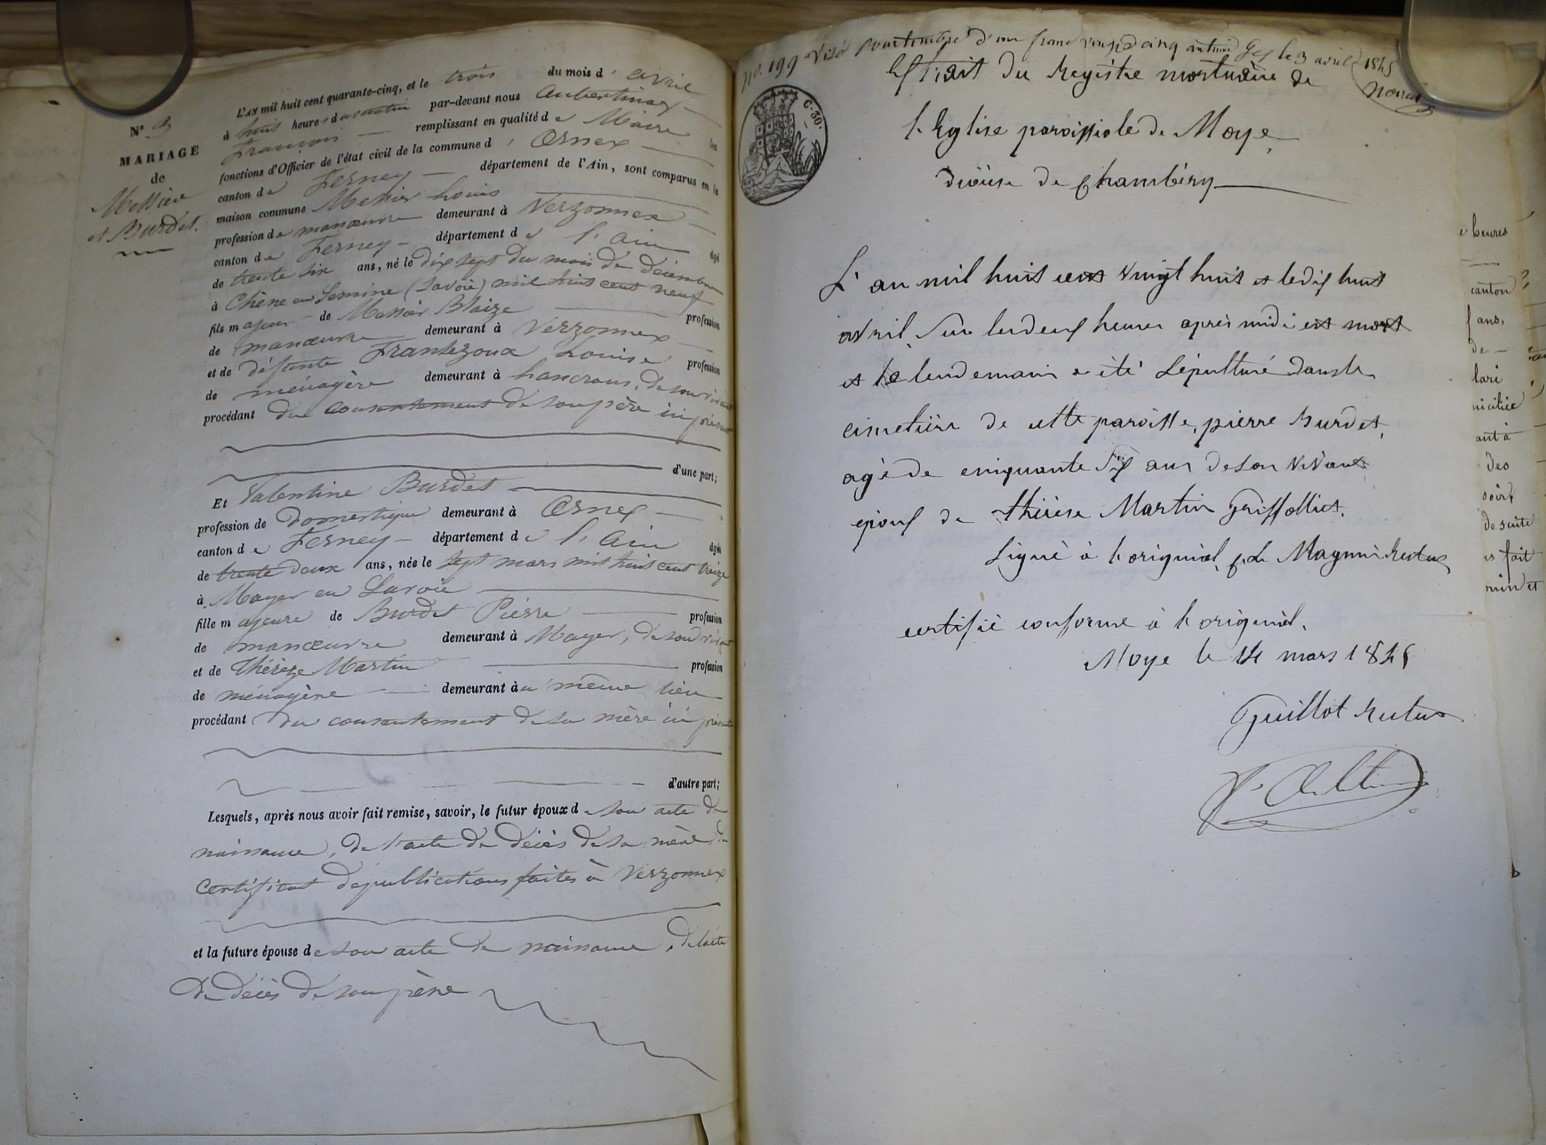 N° 3
MARIAGE
de
Messier
et Burdet.
L'AN mil huit cent quarante-cinq, et le trois du mois d'avril
à huit heures du matin par-devant nous Aubertin
François remplissant en qualité de Maire les
fonctions d'Officier de l'état civil de la commune d'Ornex
canton de Ferney département de l'Ain, sont comparus en la
maison commune Louis
profession de manœuvre demeurant à Verzonnex
canton de Ferney département de l'Ain âgé
de trente six ans, né le dix sept du mois de décembre
à Chêne en Semine (Savoie) mil huit cent neuf
fils majeur de Blaize profession
de manœuvre demeurant à Verzonnex
et de défunte Louise profession
de ménagère demeurant à de son vivant
procédant du consentement de son père ici présent
d'une part;
Et Valentine Burdet
profession de Domestique demeurant à Ornex
canton de Ferney département de l'Ain âgée
de trente deux ans, née le sept mars mil huit cent treize
à Moyer en Savoie
fille majeure de Burdet Pierre profession
de manœuvre demeurant à Moyer, de son vivant
et de Thérèze Martin profession
de ménagère demeurant au même lieu
procédant du consentement de sa mère ici présente
d'autre part;
Lesquels, après nous avoir fait remise, savoir, le futur époux de son acte de
naissance, de l'acte de décès de sa mère, du
certificat de publications faites à Verzonnex
et la future épouse de son acte de naissance, de l'acte
de décès de son père
No. 199 Visé pour timbre d'un franc vingt cinq centimes Gex le 3 avril 1845
C. 50.
Extrait du Registre mortuaire de
l'Eglise paroissiale de Moye,
diocèse de Chambéry
L'an mil huit cent vingt huit et le dix huit
avril, sur les deux heures après midi est mort
et le lendemain a été sépulturé dans le
cimetière de cette paroisse, pierre Burdet,
agé de cinquante six ans de son vivant
époux de thérèse Martin Griffollies.
Signé à l'original, Magnin Recteur
certifié conforme à l'original,
Moye le 14 mars 1845
Guillot Recteur
heures
canton
ans,
de
ant à
des
soir
de suite
fait
min et